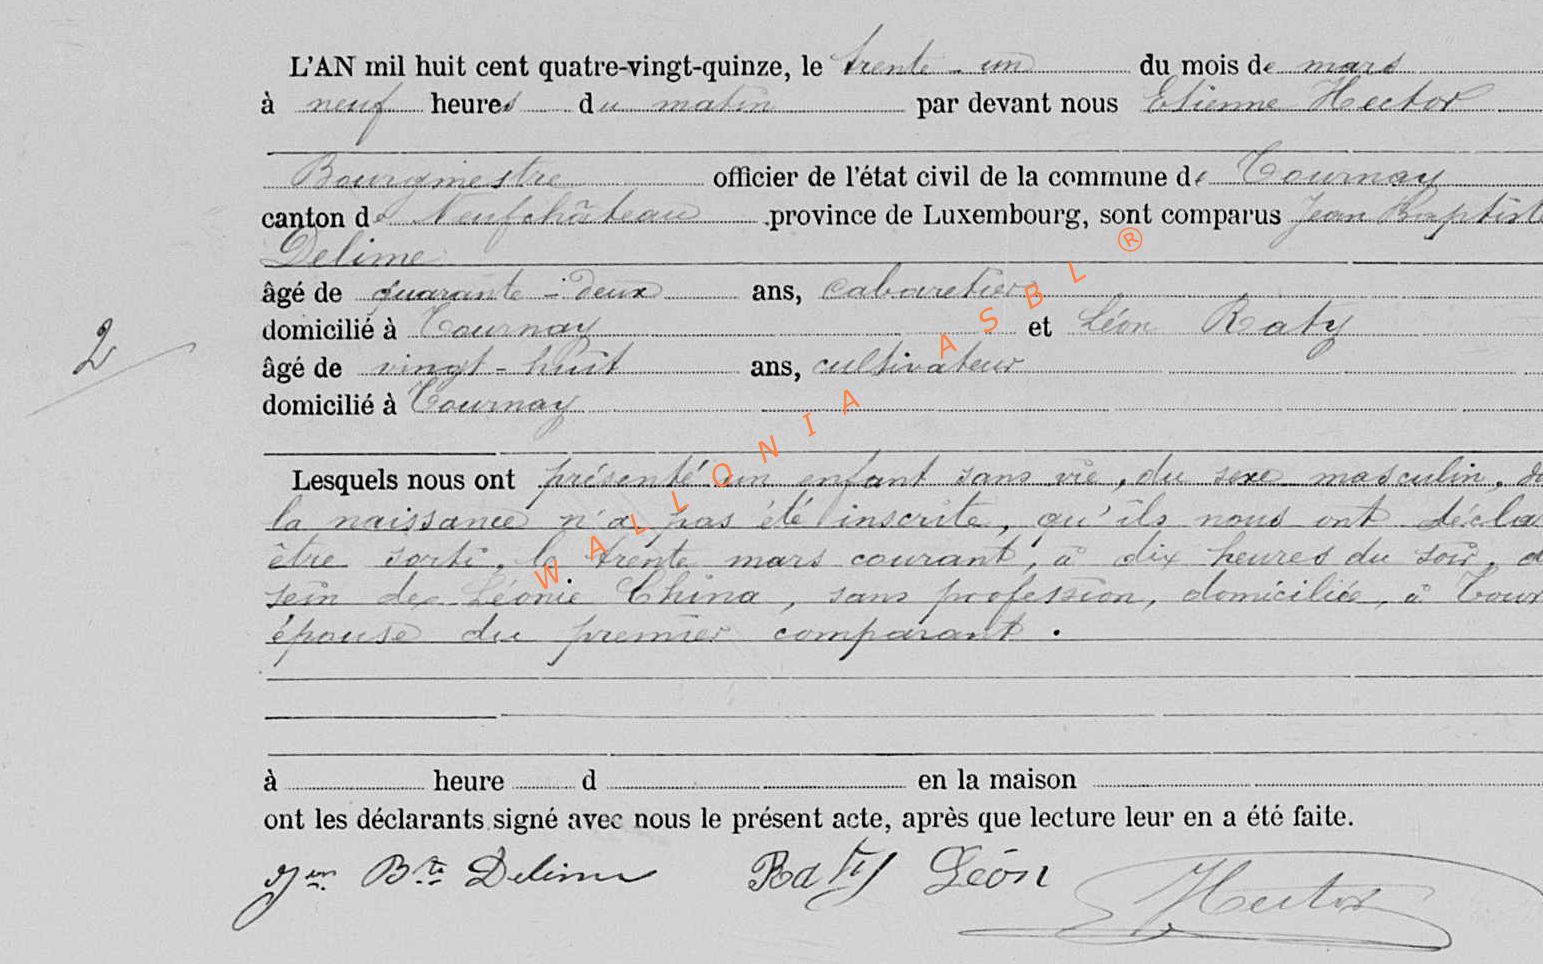 L'AN mil huit cent quatre-vingt-quinze, le trente-un du mois de mars
à neuf heures du matin par devant nous Etienne Hector
Bourgmestre officier de l'état civil de la commune de Tournay
canton de Neufchâteau province de Luxembourg, sont comparus Jean Baptist
Delime
âgé de quarante-deux ans, cabaretier
domicilié à Tournay et Léon Raty
2
âgé de vingt-huit ans, cultivateur
domicilié à Tournay
Lesquels nous ont présenté un enfant sans vie, du sexe masculin, do
la naissance n'a pas été inscrite, qu'ils nous ont décla
être sorti, le trente mars courant, à dix heures du soir, d
sein de Léonie China, sans profession, domiciliée, à Tour
épouse du premier comparant.
à heure d en la maison
ont les déclarants signé avec nous le présent acte, après que lecture leur en a été faite.
Jn Bte Delime Raty Léon Hector
WALLONIA ASBL ®